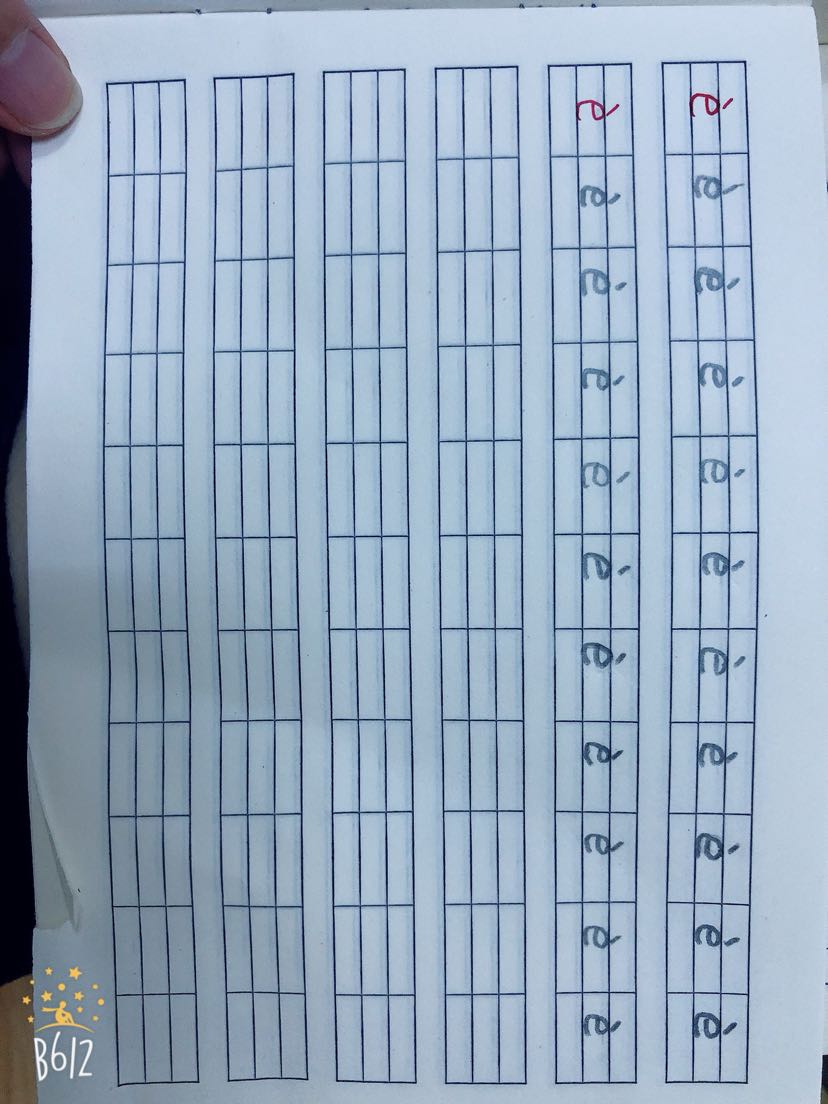 è è è è è è è è è è è
è è è è è è è è è è è
B612